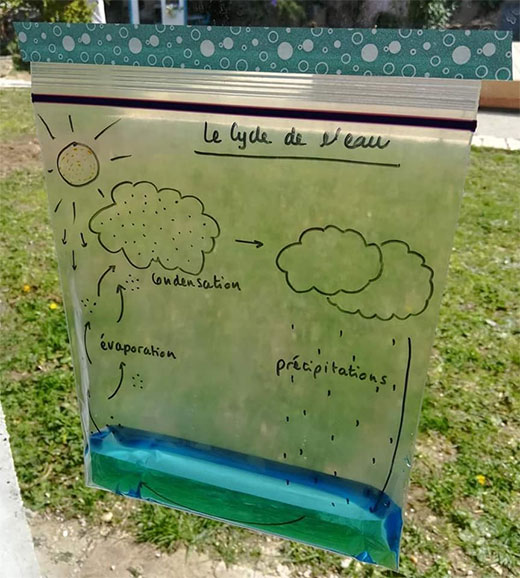 Le Cycle de l'eau
Condensation
évaporation
précipitations